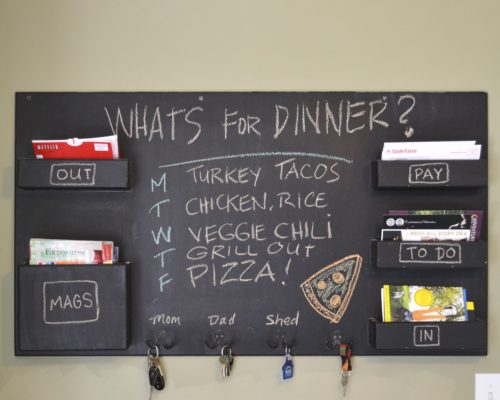 WHAT'S FOR DINNER?
NETFLIX
OUT
M TURKEY TACOS
T CHICKEN, RICE
W VEGGIE CHILI
T GRILL OUT
F PIZZA!
StateFarm
PAY
TO DO
Exposures
MAGS
Mom Dad Shed
IN